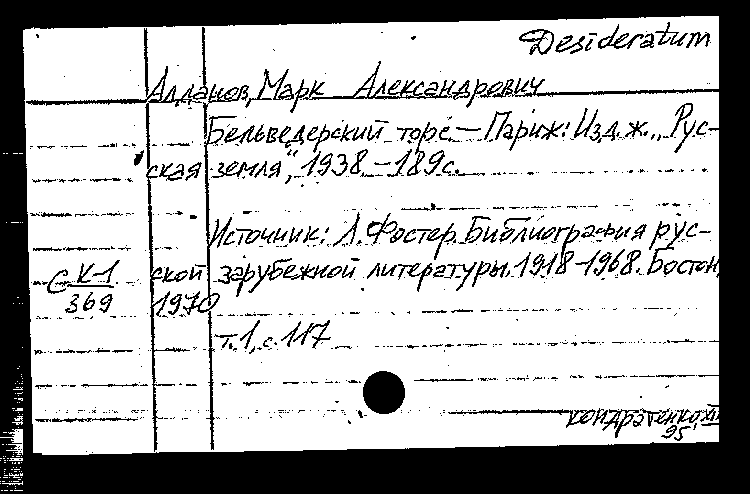 Desideratum
Алданов, Марк Александрович
Бельведерский торс. – Париж: Изд. ж. „Рус-
ская земля", 1938. – 189с.
Источник: Л. Фостер. Библиография рус-
С К-1 ской зарубежной литературы. 1918-1968. Бостон,
369 1970
т.1, с.117
Кондратенко XII
95